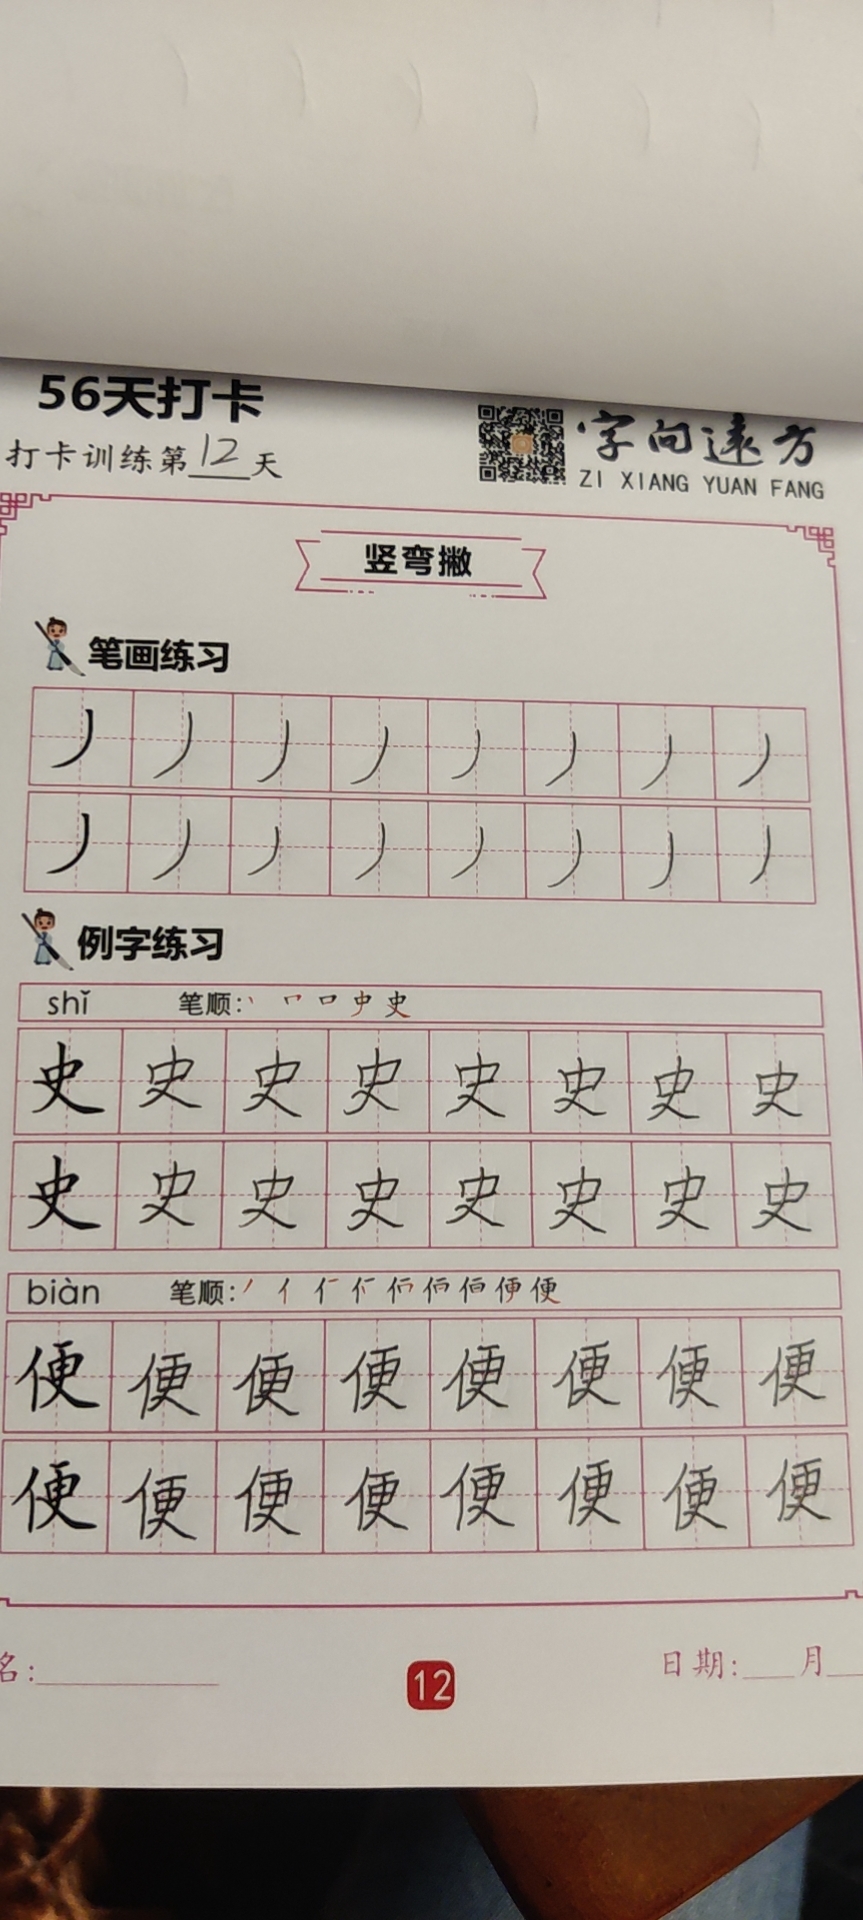 56天打卡
字向远方
ZI XIANG YUAN FANG
打卡训练第12天
竖弯撇
笔画练习
丿丿丿丿丿丿丿丿
丿丿丿丿丿丿丿丿
例字练习
shǐ 笔顺:丶 𠃍 口 史 史
史史史史史史史史
史史史史史史史史
biàn 笔顺:
便便便便便便便便
便便便便便便便便
名:
12
日期: 月